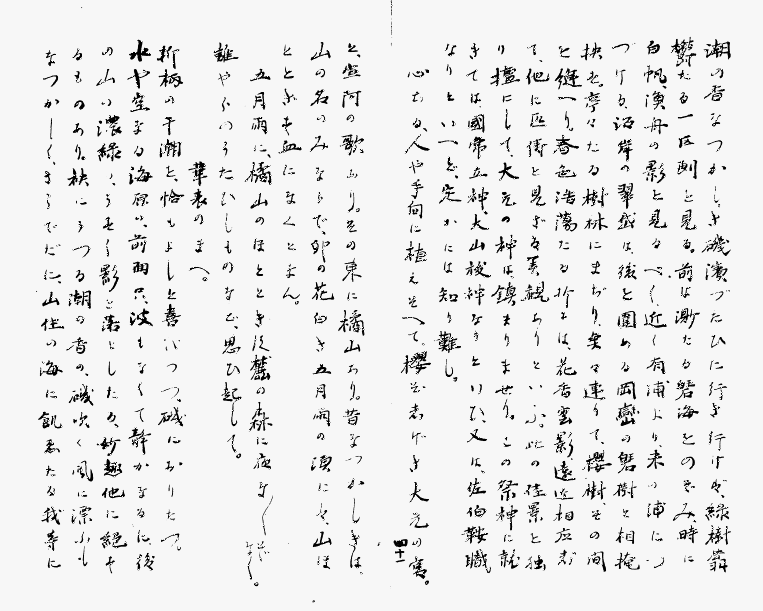 潮の香なつかしき磯濱づたひに行き行けば、緑樹蓊
欝たる一区劃を見る。前は渺たる碧海をのぞみ、時に
白帆、漁舟の影を見るべく、近く有浦より、末の浦につ
づける、沿岸の翠黛は、後を圍める岡巒の碧樹と相掩
映せ。亭々たる樹林にまぢり、点々連りて、櫻樹、その間
を縫へり。春色浩蕩たる折には、花香雲影、遠近相応じ
て、他に匹儔を見ざる美観ありといふ。此の佳景を独
り擅にして、大元の神は、鎮まりませり。この祭神に就
きては、國常立神、大山祇神なりといひ、又は、佐伯鞍職
なりといへど、定かには知り難し。
心ある、人や手向に植えそへて。櫻をしげき大元の宮。
四十一
と、宮阿の歌あり。その東に橘山あり。昔なつかしきは、
山の名のみならで、卯の花白き五月雨の頃にも、山ほ
ととぎす血になくとなん。
五月雨に、橘山のほととぎす、麓の森に夜な〱ぞなく。
誰やらのうたひしものなど、思ひ起して。
華表のまへ。
折柄の干潮を、恰もよしと喜びつつ、磯におりたつ。
水や空なる海原は、前面只、波もなくて静かなるに、後
の山の濃緑く、うすく影を落としたる、妙趣他に絶す
るものあり。袂にうつる潮の香の、磯吹く風に漂ふも
なつかしく、さらでだに、山住の海に飢ゑたる我等に